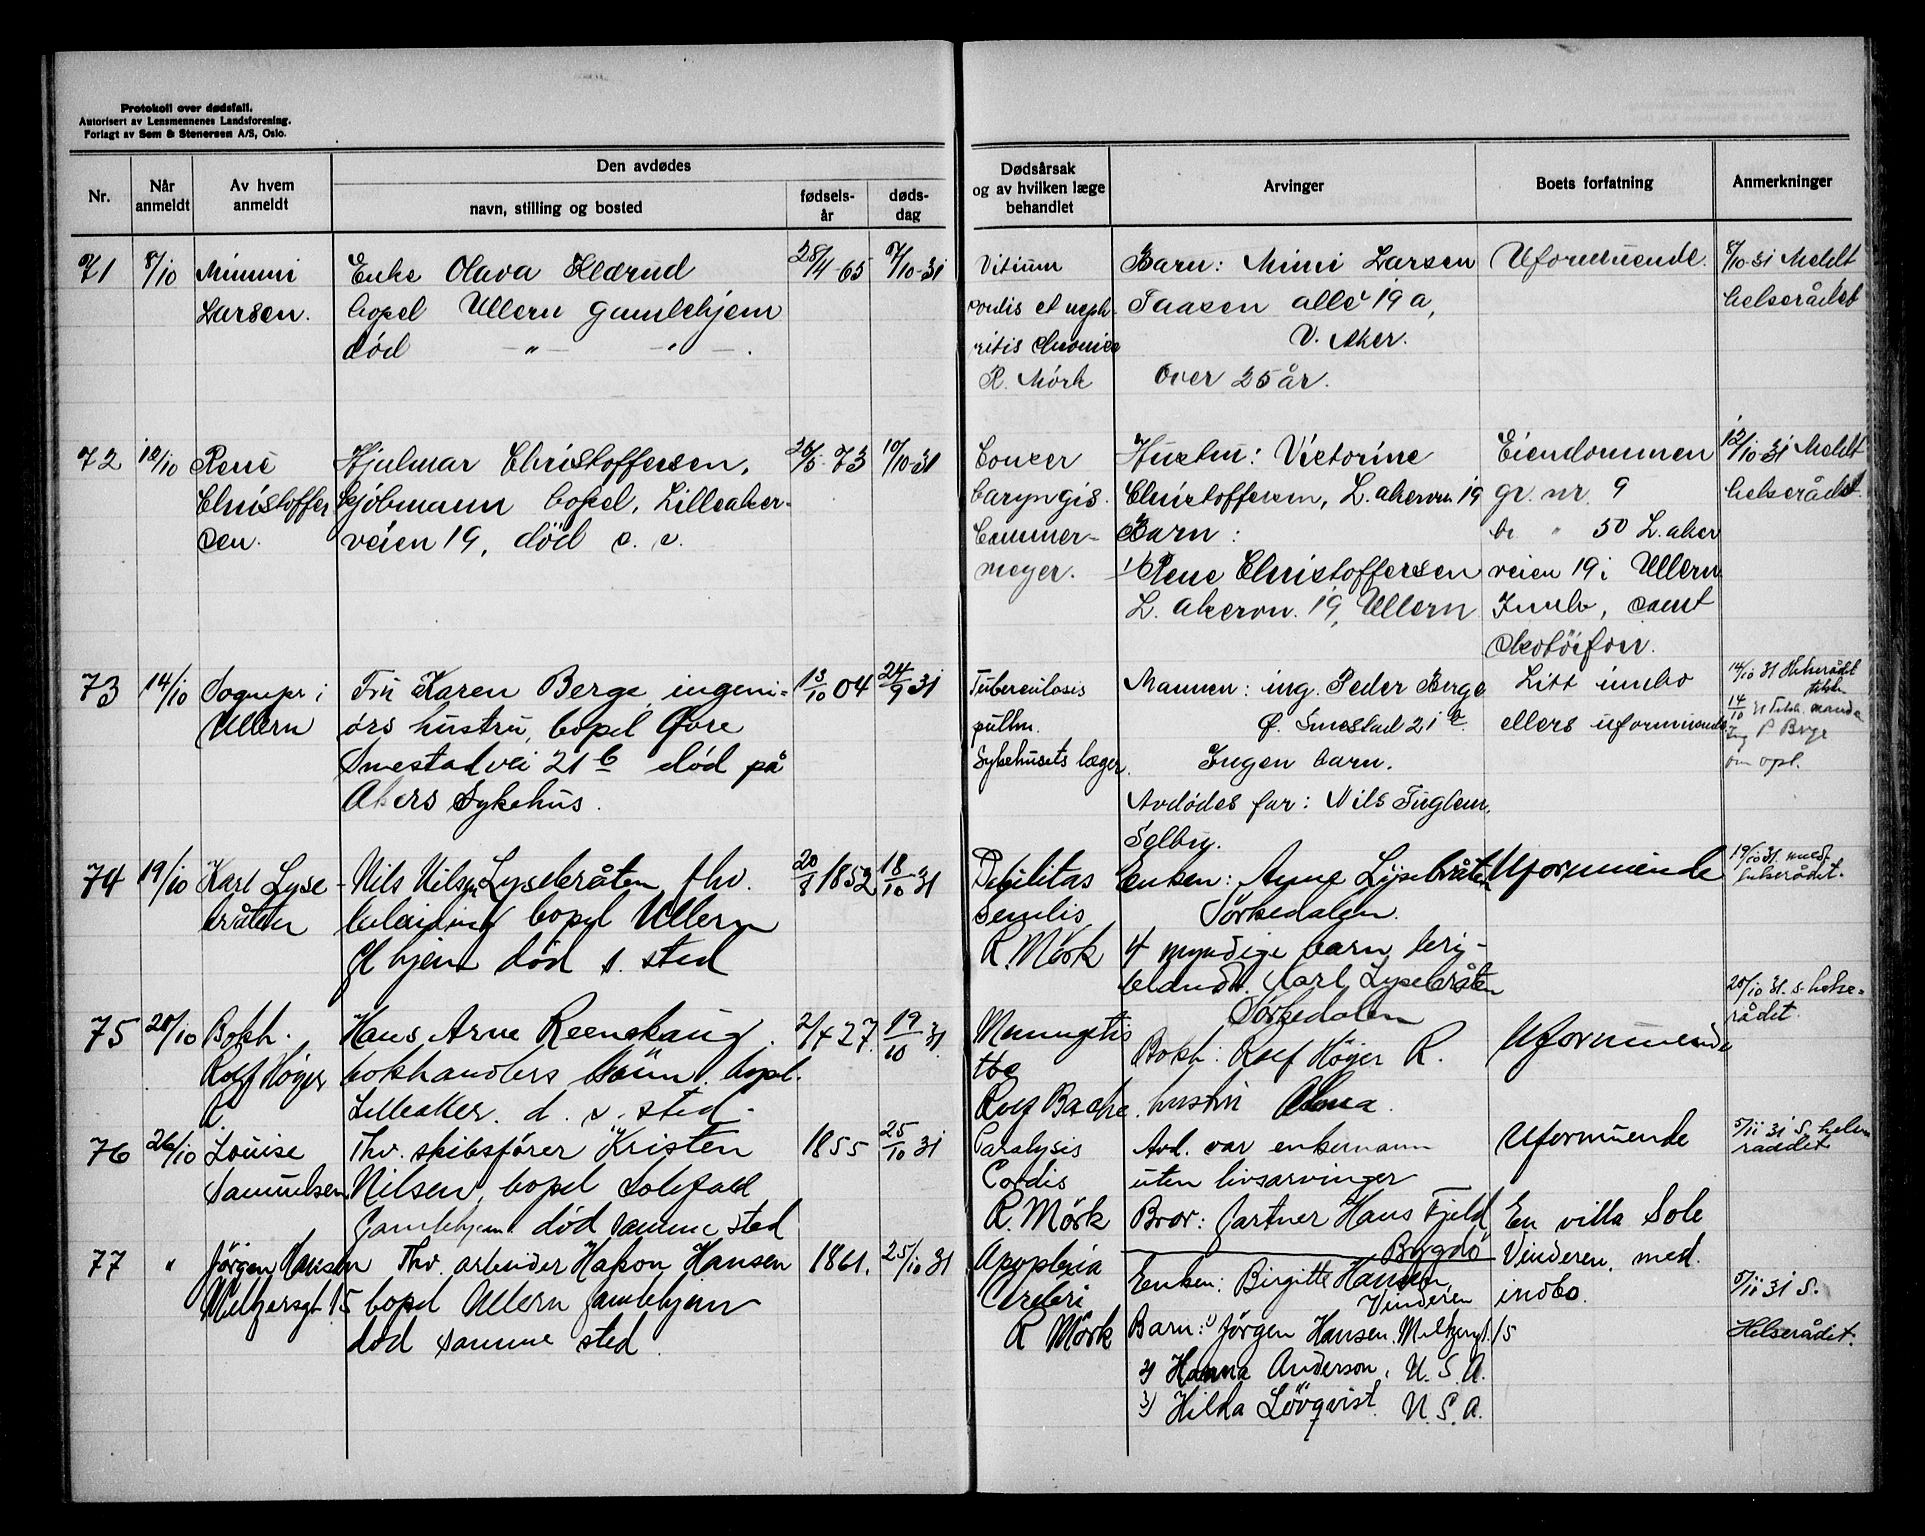 Protokoll over dødsfall.
Autorisert av Lensmennenes Landsforening.
Forlagt av Sem & Stenersen A/S, Oslo.
Nr.
Når anmeldt
Av hvem anmeldt
Den avdødes
navn, stilling og bosted
fødsels-år
døds-dag
Dødsårsak og av hvilken læge behandlet
Arvinger
Boets forfatning
Anmerkninger
71
8/10
Mimmi
Larsen.
Enke Olava
bopel Ullern gamlehjem
død — " — " — .
28/4-65
7/10-31
Vitium
cordis et neph-
ritis chronica
R. Mörk
Barn: Mimi Larsen
Taasen allé 19 a,
V. Aker.
Over 25 år.
Uformuende.
8/10-31 Meldt
helserådet
72
12/10
René
Christoffer
sen.
Hjalmar Christoffersen,
kjöbmann bopel, Lilleaker-
veien 19, död s. s.
26/5-73
10/10-31
Cancer
laryngis.
Cammer-
meyer.
Hustru: Victorine
Christoffersen, L. akervn 19
Barn:
1/ Rene Christoffersen
L. akervn. 19, Ullern
Eiendommen
gr. nr. 9
br " 50 L. aker
veien 19 i Ullern
Innbo, samt
12/10-31 Meldt
helserådet
73
14/10
Sognepr i
Ullern
Fru Karen Berge, ingeni-
örs hustru, bopel Øvre
Smestadvei 21 b død på
Akers Sykehus.
13/10 04
24/9 31
Tuberculosis
pulm.
Sykehusets læger.
Mannen: ing. Peder Berge
Ø. Smestad 21 b.
Ingen barn.
Avdödes far: Nils Fuglem,
Selbu.
Litt innbo
ellers uformuende
14/10 31 Helserådet
14/10
ing P Berge
om opl.
74
19/10
Karl Lyse
bråten
Nils Nilsen Lysebråten fhv.
bopel Ullern
Gl hjem död s. sted
20/8 1852
18/10 31
Debilitas
senilis
R. Mörk
Enken: Anne Lysebråten
Sörkedalen.
4 myndige barn, heri-
blandt Karl Lysebråten
Sörkedalen
Uformuende
19/10 31. meldt
helserådet.
75
20/10
Bokh.
Rolf Höyer
R.
Hans Arne Reenskaug.
bokhandlers sönn. bopl.
Lilleaker. d. s. sted.
2/4 27.
19/10 31.
Meningitis
tbc
Rolf Bache.
Bokh: Rolf Höyer R.
hustru Alma.
Uformuende
20/10 31. s. helse-
rådet.
76
26/10
Louise
Samuelsen
Fhv. skibsförer Kristen
Nilsen, bopel Solefald
Gamlehjem död samme sted
1855
25/10 31
Paralysis
Cordis
R. Mörk
Avd. var enkemann
uten livsarvinger
Bror: Gartner Hans Fjeld
Bygdö
Uformuende
5/11 31 S. helse
raadet
77
"
Jörgen Hansen
Meltzersgt. 15
Fhv. arbeider Hakon Hansen
bopel Ullern Gamlehjem
död samme sted.
1861.
25/10 31
Apoplexia
Cerebri
R Mörk
Enken: Birgitte Hansen
Vinderen
Barn: 1) Jörgen Hansen. Meltzersgt. 15
2) Hanna Anderson, U. S. A.
3) Hilda Lövqvist. U. S. A.
En villa Sole
Vinderen, med.
indbo.
5/11 31 S.
Helserådet.